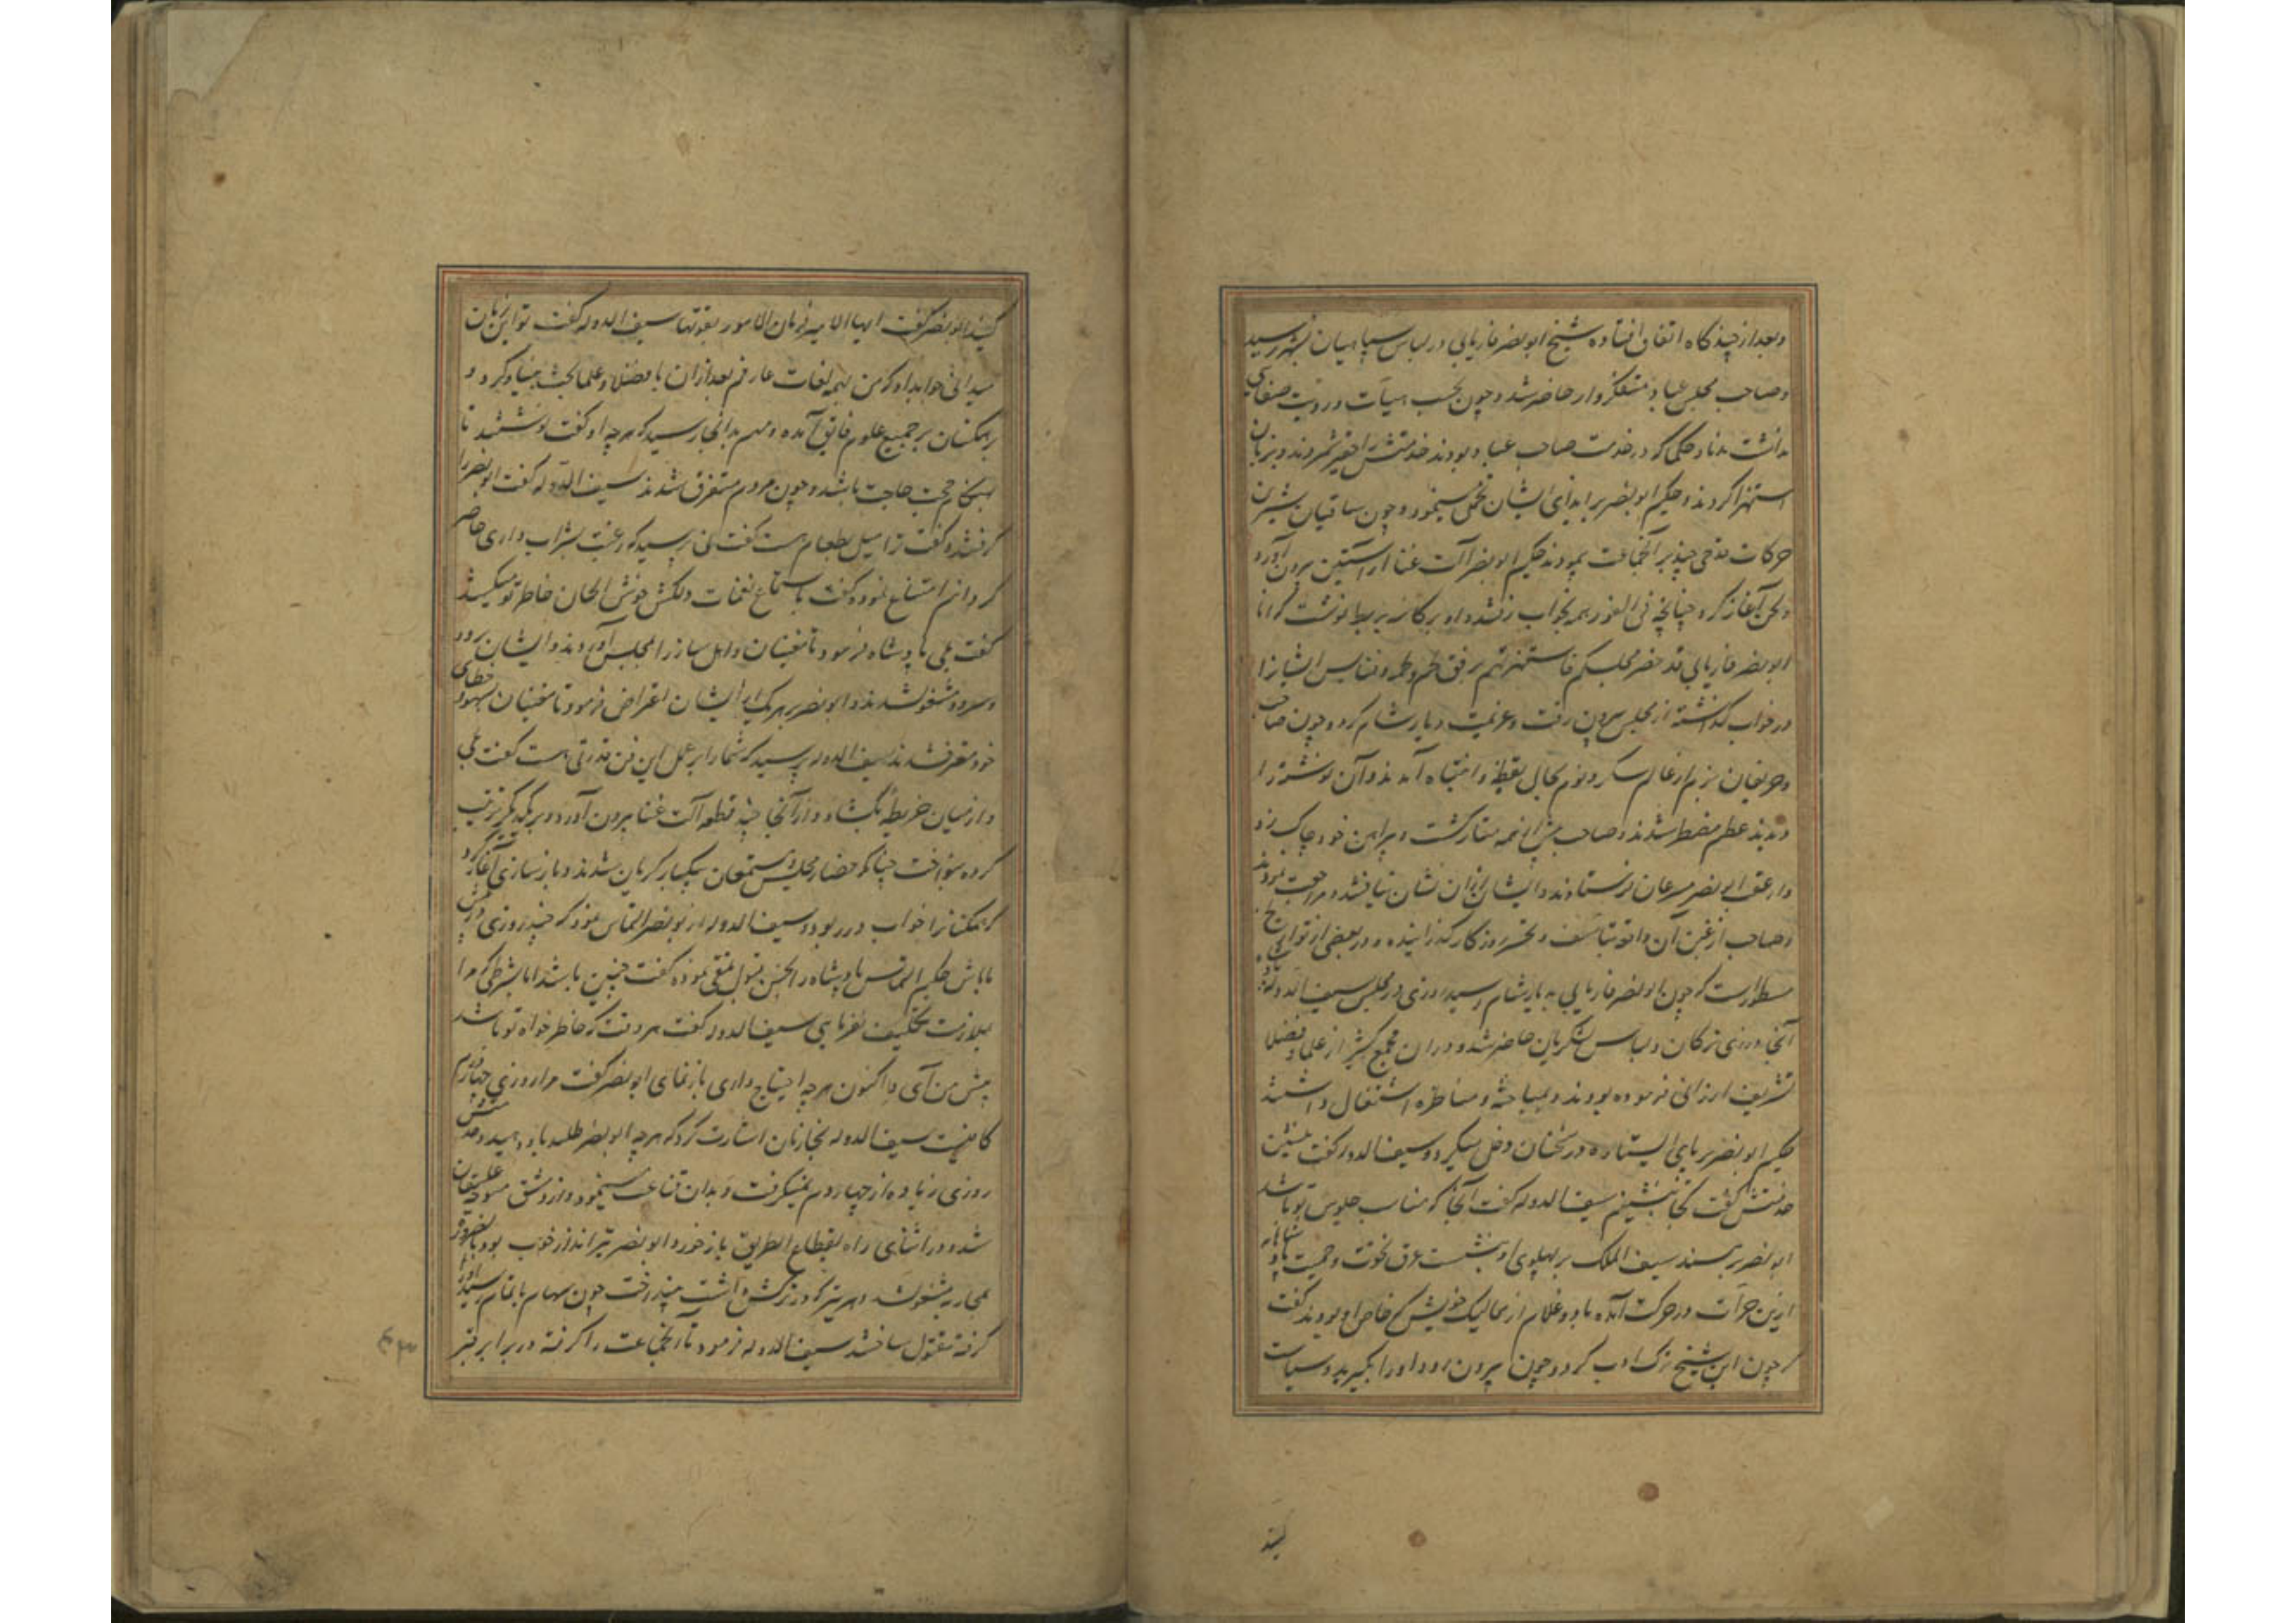 وبعد از چند گاه اتفاق افتاده شیخ ابونصر فاریابی در لباس سپاهیان بشهر رسید
وصاحب مجلس عباد متنکروار حاضر شد و چون بحسب هیأت و رویت صفائی
نداشت ندما و حکمائی که در خدمت صاحب عباد بودند خدمتش را حقیر شمردند و بزبان
استهزا کردند و حکیم ابونصر بر ایذای ایشان تحمل مینمود و چون ساقیان شیرین
حرکات قدحی چند بر آنجماعت پیمودند حکیم ابونصر آلت غنا از آستین بیرون آورد
ولحن آغاز کرد چنانچه فی الفور همه بخواب رفتند و او بر کاسه بربط نوشت که انا
ابونصر فاریابی قد حضر مجلسکم فاستهزیتم و ایشان را
در خواب گذاشته از مجلس بیرون رفت و عزیمت دیار شام کرد و چون صاحب
و حریفان بزم از عالم سکر و نوم بحال یقظه و انتباه آمدند و آن نوشته را
دیدند عظیم مضطر شدند و صاحب و پیراهن خود چاک زد
و از عقب ابونصر مسرعان فرستادند و ایشان از آن نشان نیافتند و مراجعت نمودند
وصاحب از غبن آن واقعه بتاسف و تحسر روزگار گذرانیده و در بعضی از تواریخ
مسطور است که چون ابونصر فاریابی به دیار شام رسید روزی در مجلس سیف الدوله پادشاه
آنجا در زی ترکان و لباس لشکریان حاضر شد و در آن مجمع کثیر از علما و فضلا
تشریف ارزانی فرموده بودند و بمباحثه و مناظره اشتغال داشتند
حکیم ابونصر بر پای ایستاده در سخنان دخل میکرد و سیف الدوله گفت بنشین
خدمتش گفت کجا بنشینم سیف الدوله گفت آنجا که مناسب جلوس تو باشد
ابونصر بر مسند سیف الملک بر پهلوی او بنشست عرق نخوت و حمیت پادشاهانه
ازین جرأت در حرکت آمده با دو غلام از ممالیک خویش که خاص او بودند گفت
که چون این شیخ ترک ادب کرد و چون بیرون رود او را بگیرید و سیاست
کنید
کنید ابونصر گفت ایها الامیر فرمان الامور بعواقبها سیف الدوله گفت تو این زبان
میدانی جواب داد که من بهمه لغات عارفم بعد از آن با فضلا و علما بحث بنیاد کرد و
بر همکنان بر جمیع علوم فایق آمده و مهم بدانجا رسید که هرچه او گفت نوشتند تا
بهنگام حاجت باشد و چون مردم متفرق شدند سیف الدوله گفت ابونصر را
گرفتند و گفت ترا میل بطعام هست گفت نی پرسید که رغبت بشراب داری حاضر
گردانم امتناع نمود و گفت باستماع نغمات دلکش خوش الحان خاطر تو میکشد
گفت بلی پادشاه فرمود تا مغنیان و اهل ساز را بمجلس آوردند و ایشان برود
و سرود مشغول شدند و ابونصر بر هر یک از ایشان اعتراض فرمود تا مغنیان بسهو و خطای
خود معترف شدند سیف الدوله پرسید که شما را بر عمل این فن قدرتی هست گفت بلی
و از میان خریطه بگشاد و از آنجا چند قطعه آلت غنا بیرون آورد و بر یکدیگر ترتیب
کرده بنواخت چنانکه حضار مجلس و مستمعان بیکبار گریان شدند و باز سازی آغاز کرد
که همکنانرا خواب در ربود و سیف الدوله از ابونصر التماس نمود که چند روزی در دمشق
با ما باش حکیم التماس پادشاه را بحسن قبول تلقی نموده گفت چنین باشد اما بشرطی که مرا
بملازمت تکلیف نفرمایی سیف الدوله گفت هر وقت که خاطر خواه تو باشد
پیش من آی و اکنون هرچه احتیاج داری باز نمای ابونصر گفت مرا روزی چهار درم
کافیست سیف الدوله بخازنان اشارت کرد که هرچه ابونصر طلبد باو دهید و خدمتش
روزی زیاده از چهار درم نمیگرفت و بدان قناعت مینمود و از دمشق متوجه عسقلان
شد و در اثنای راه بقطاع الطریق باز خورد و ابونصر تیرانداز خوب بود بالضرور
بمحاربه مشغول شد و هر تیر که در ترکش داشت بینداخت چون سهام باتمام رسید او را
گرفته مقتول ساختند سیف الدوله فرمود تا آنجماعت را گرفته در برابر قبر